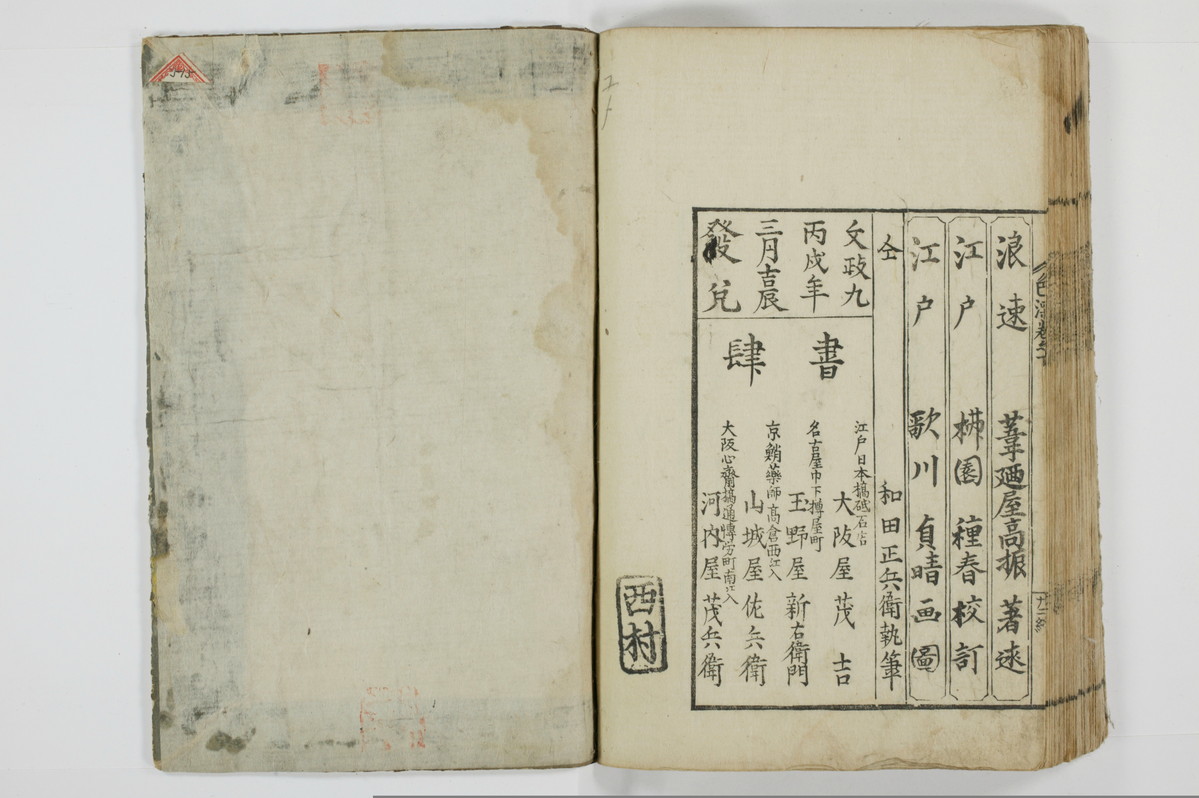 浪速 葦廼屋高振 著述
江戸 柹園種春 校訂
江戸 歌川貞晴 画圖
仝 和田正兵衛 執筆
文政九
丙戌年
三月吉辰
發兌
書
肆
江戸日本橋砥石店
大阪屋茂吉
名古屋巾下樽屋町
玉野屋新右衛門
京蛸藥師高倉西江入
山城屋佐兵衛
大阪心齋橋通博労町南江入
河内屋茂兵衛
西村